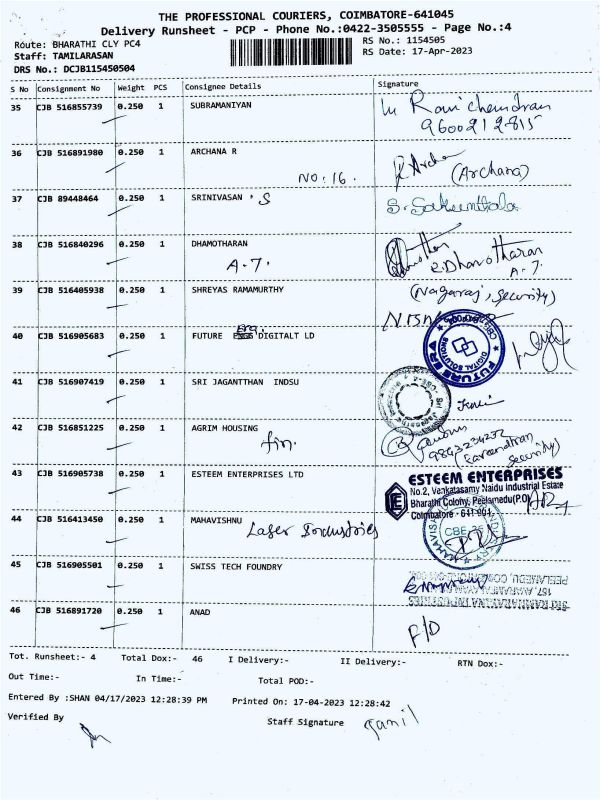 THE PROFESSIONAL COURIERS, COIMBATORE-641045
Delivery Runsheet - PCP - Phone No.:0422-3505555 - Page No.:4
Route: BHARATHI CLY PC4 RS No.: 1154505
Staff: TAMILARASAN RS Date: 17-Apr-2023
DRS No.: DCJB115450504
S No Consignment No Weight PCS Consignee Details Signature
35 CJB 516855739 0.250 1 SUBRAMANIYAN
Ravichendran
9600212815
36 CJB 516891980 0.250 1 ARCHANA R
NO: 16. (Archana)
37 CJB 89448464 0.250 1 SRINIVASAN 'S S. Sakunthala
38 CJB 516840296 0.250 1 DHAMOTHARAN
A-7. R. Dhamotharan
A-7.
39 CJB 516405938 0.250 1 SHREYAS RAMAMURTHY (Nagaraj, Security)
40 CJB 516905683 0.250 1 FUTURE era DIGITALT LD
FUTURE ERA DIGITAL
41 CJB 516907419 0.250 1 SRI JAGANTTHAN INDSU
42 CJB 516851225 0.250 1 AGRIM HOUSING
fin. 9843234232
Security)
43 CJB 516905738 0.250 1 ESTEEM ENTERPRISES LTD ESTEEM ENTERPRISES
No.2, Venkatasamy Naidu Industrial Estate
Bharathi Colony, Peelamedu(P.O)
Coimbatore - 641 004.
44 CJB 516413450 0.250 1 MAHAVISHNU
Laser Industries
CBE
45 CJB 516905501 0.250 1 SWISS TECH FOUNDRY
46 CJB 516891720 0.250 1 ANAD
F/D
Tot. Runsheet:- 4 Total Dox:- 46 I Delivery:- II Delivery:- RTN Dox:-
Out Time:- In Time:- Total POD:-
Entered By :SHAN 04/17/2023 12:28:39 PM Printed On: 17-04-2023 12:28:42
Verified By Staff Signature